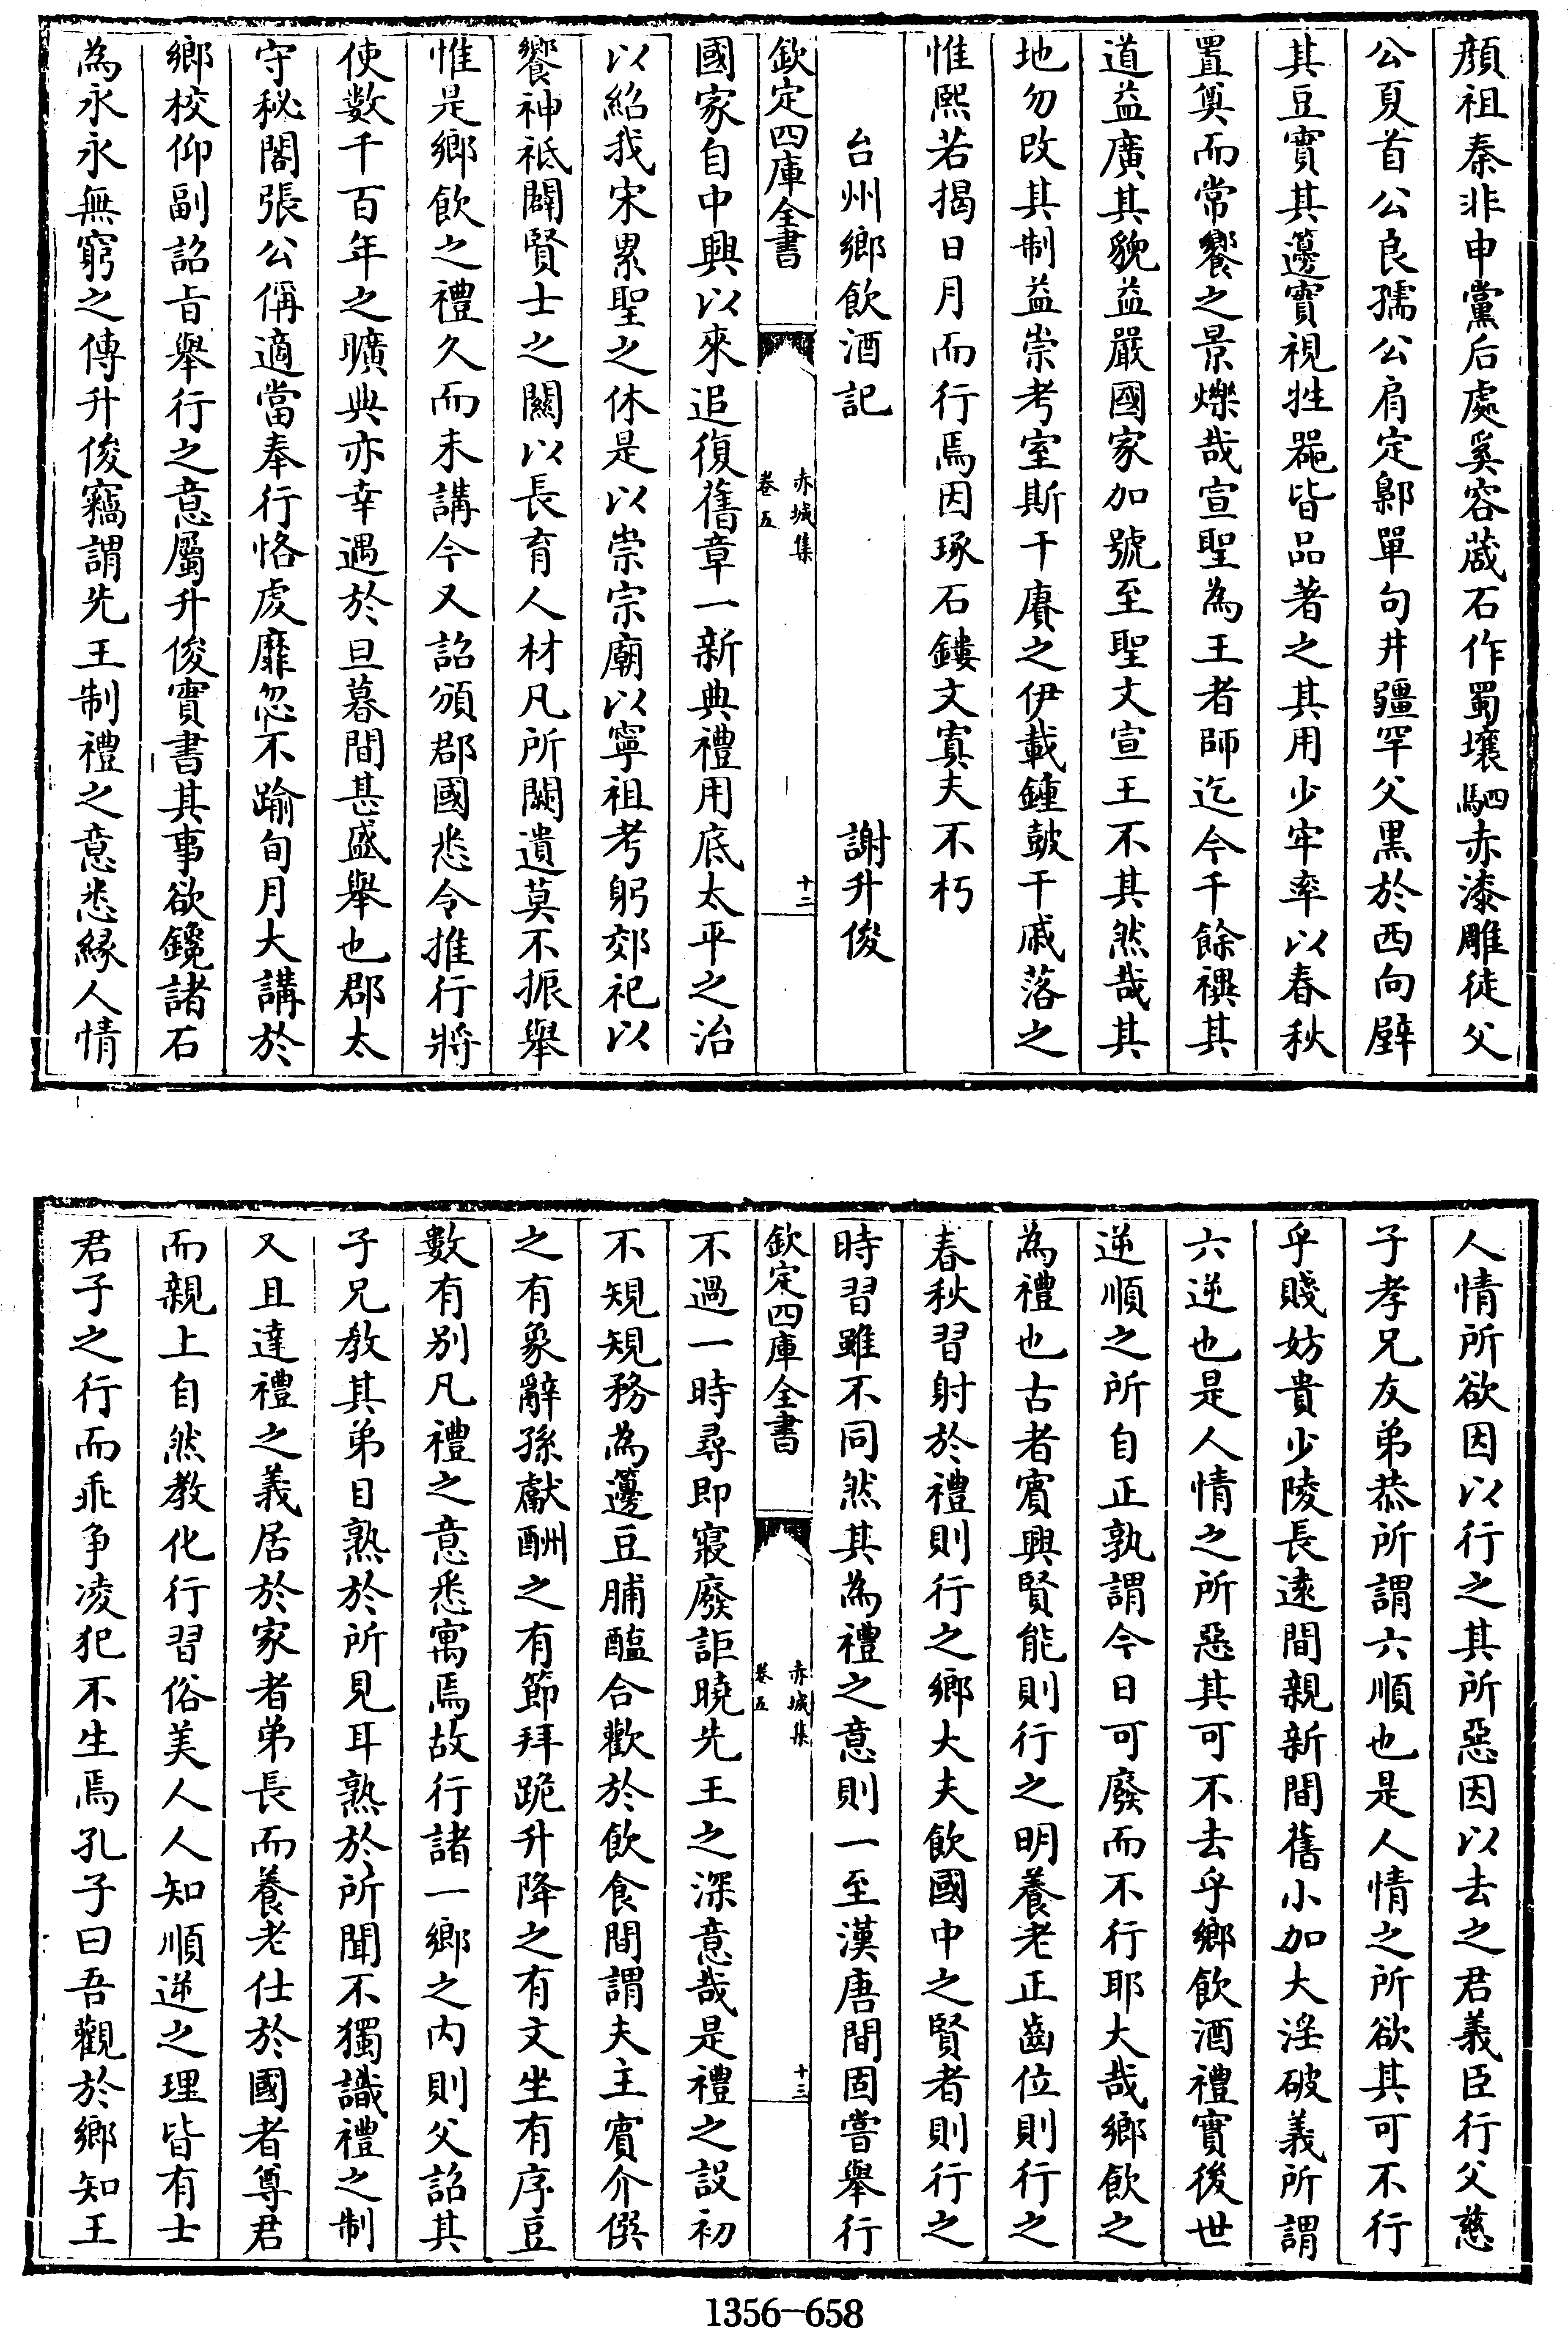 顏祖秦非申黨后處奚容蒧石作蜀壤駟赤漆雕徒父
公夏首公良孺公肩定鄡單句井疆罕父黑於西向辟
其豆實其籩實視牲器皆品著之其用少牢率以春秋
置奠而常饗之景爍哉宣聖為王者師迄今千餘禩其
道益廣其貌益嚴國家加號至聖文宣王不其然哉其
地勿改其制益崇考室斯干賡之伊載鍾皷干戚落之
惟熙若揭日月而行焉因琢石鏤文寘夫不朽
台州鄉飲酒記 謝升俊
欽定四庫全書 赤城集 卷五 十二
國家自中興以來追復舊章一新典禮用底太平之治
以紹我宋累聖之休是以崇宗廟以寧祖考躬郊祀以
饗神祇闢賢士之關以長育人材凡所闕遺莫不振舉
惟是鄉飲之禮久而未講今又詔頒郡國悉令推行將
使數千百年之曠典亦幸遇於旦暮間甚盛舉也郡太
守秘閣張公偁適當奉行恪虔靡忽不踰旬月大講於
鄉校仰副詔旨舉行之意屬升俊實書其事欲鑱諸石
為永永無窮之傳升俊竊謂先王制禮之意悉緣人情
人情所欲因以行之其所惡因以去之君義臣行父慈
子孝兄友弟恭所謂六順也是人情之所欲其可不行
乎賤妨貴少陵長遠間親新間舊小加大淫破義所謂
六逆也是人情之所惡其可不去乎鄉飲酒禮實後世
逆順之所自正孰謂今日可廢而不行耶大哉鄉飲之
為禮也古者賓興賢能則行之明養老正齒位則行之
春秋習射於禮則行之鄉大夫飲國中之賢者則行之
時習雖不同然其為禮之意則一至漢唐間固嘗舉行
欽定四庫全書 赤城集 卷五 十三
不過一時尋即寢廢詎曉先王之深意哉是禮之設初
不規規務為籩豆脯醢合歡於飲食間謂夫主賓介僎
之有象辭孫獻酬之有節拜跪升降之有文坐有序豆
數有别凡禮之意悉寓焉故行諸一鄉之内則父詔其
子兄教其弟目熟於所見耳熟於所聞不獨識禮之制
又且達禮之義居於家者弟長而養老仕於國者尊君
而親上自然教化行習俗美人人知順逆之理皆有士
君子之行而乖争凌犯不生焉孔子曰吾觀於鄉知王
1356-658